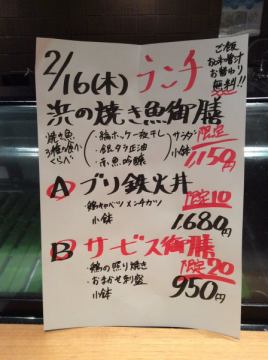 2/16(木) ランチ
ご飯
お味噌汁
お替わり
無料!!
浜の焼き魚御膳
焼き魚
3種の食べ
くらべ
(・縞ホッケ一夜干し
・銀ダラ正油
・赤魚吟醸)
サラダ
小鉢
限定
1,150円
A ブリ鉄火丼
限定10
・鶏キャベツメンチカツ
小鉢
1,680円
B サービス御膳
限定20
・鶏の照り焼き
・おまかせ刺盛
小鉢
950円